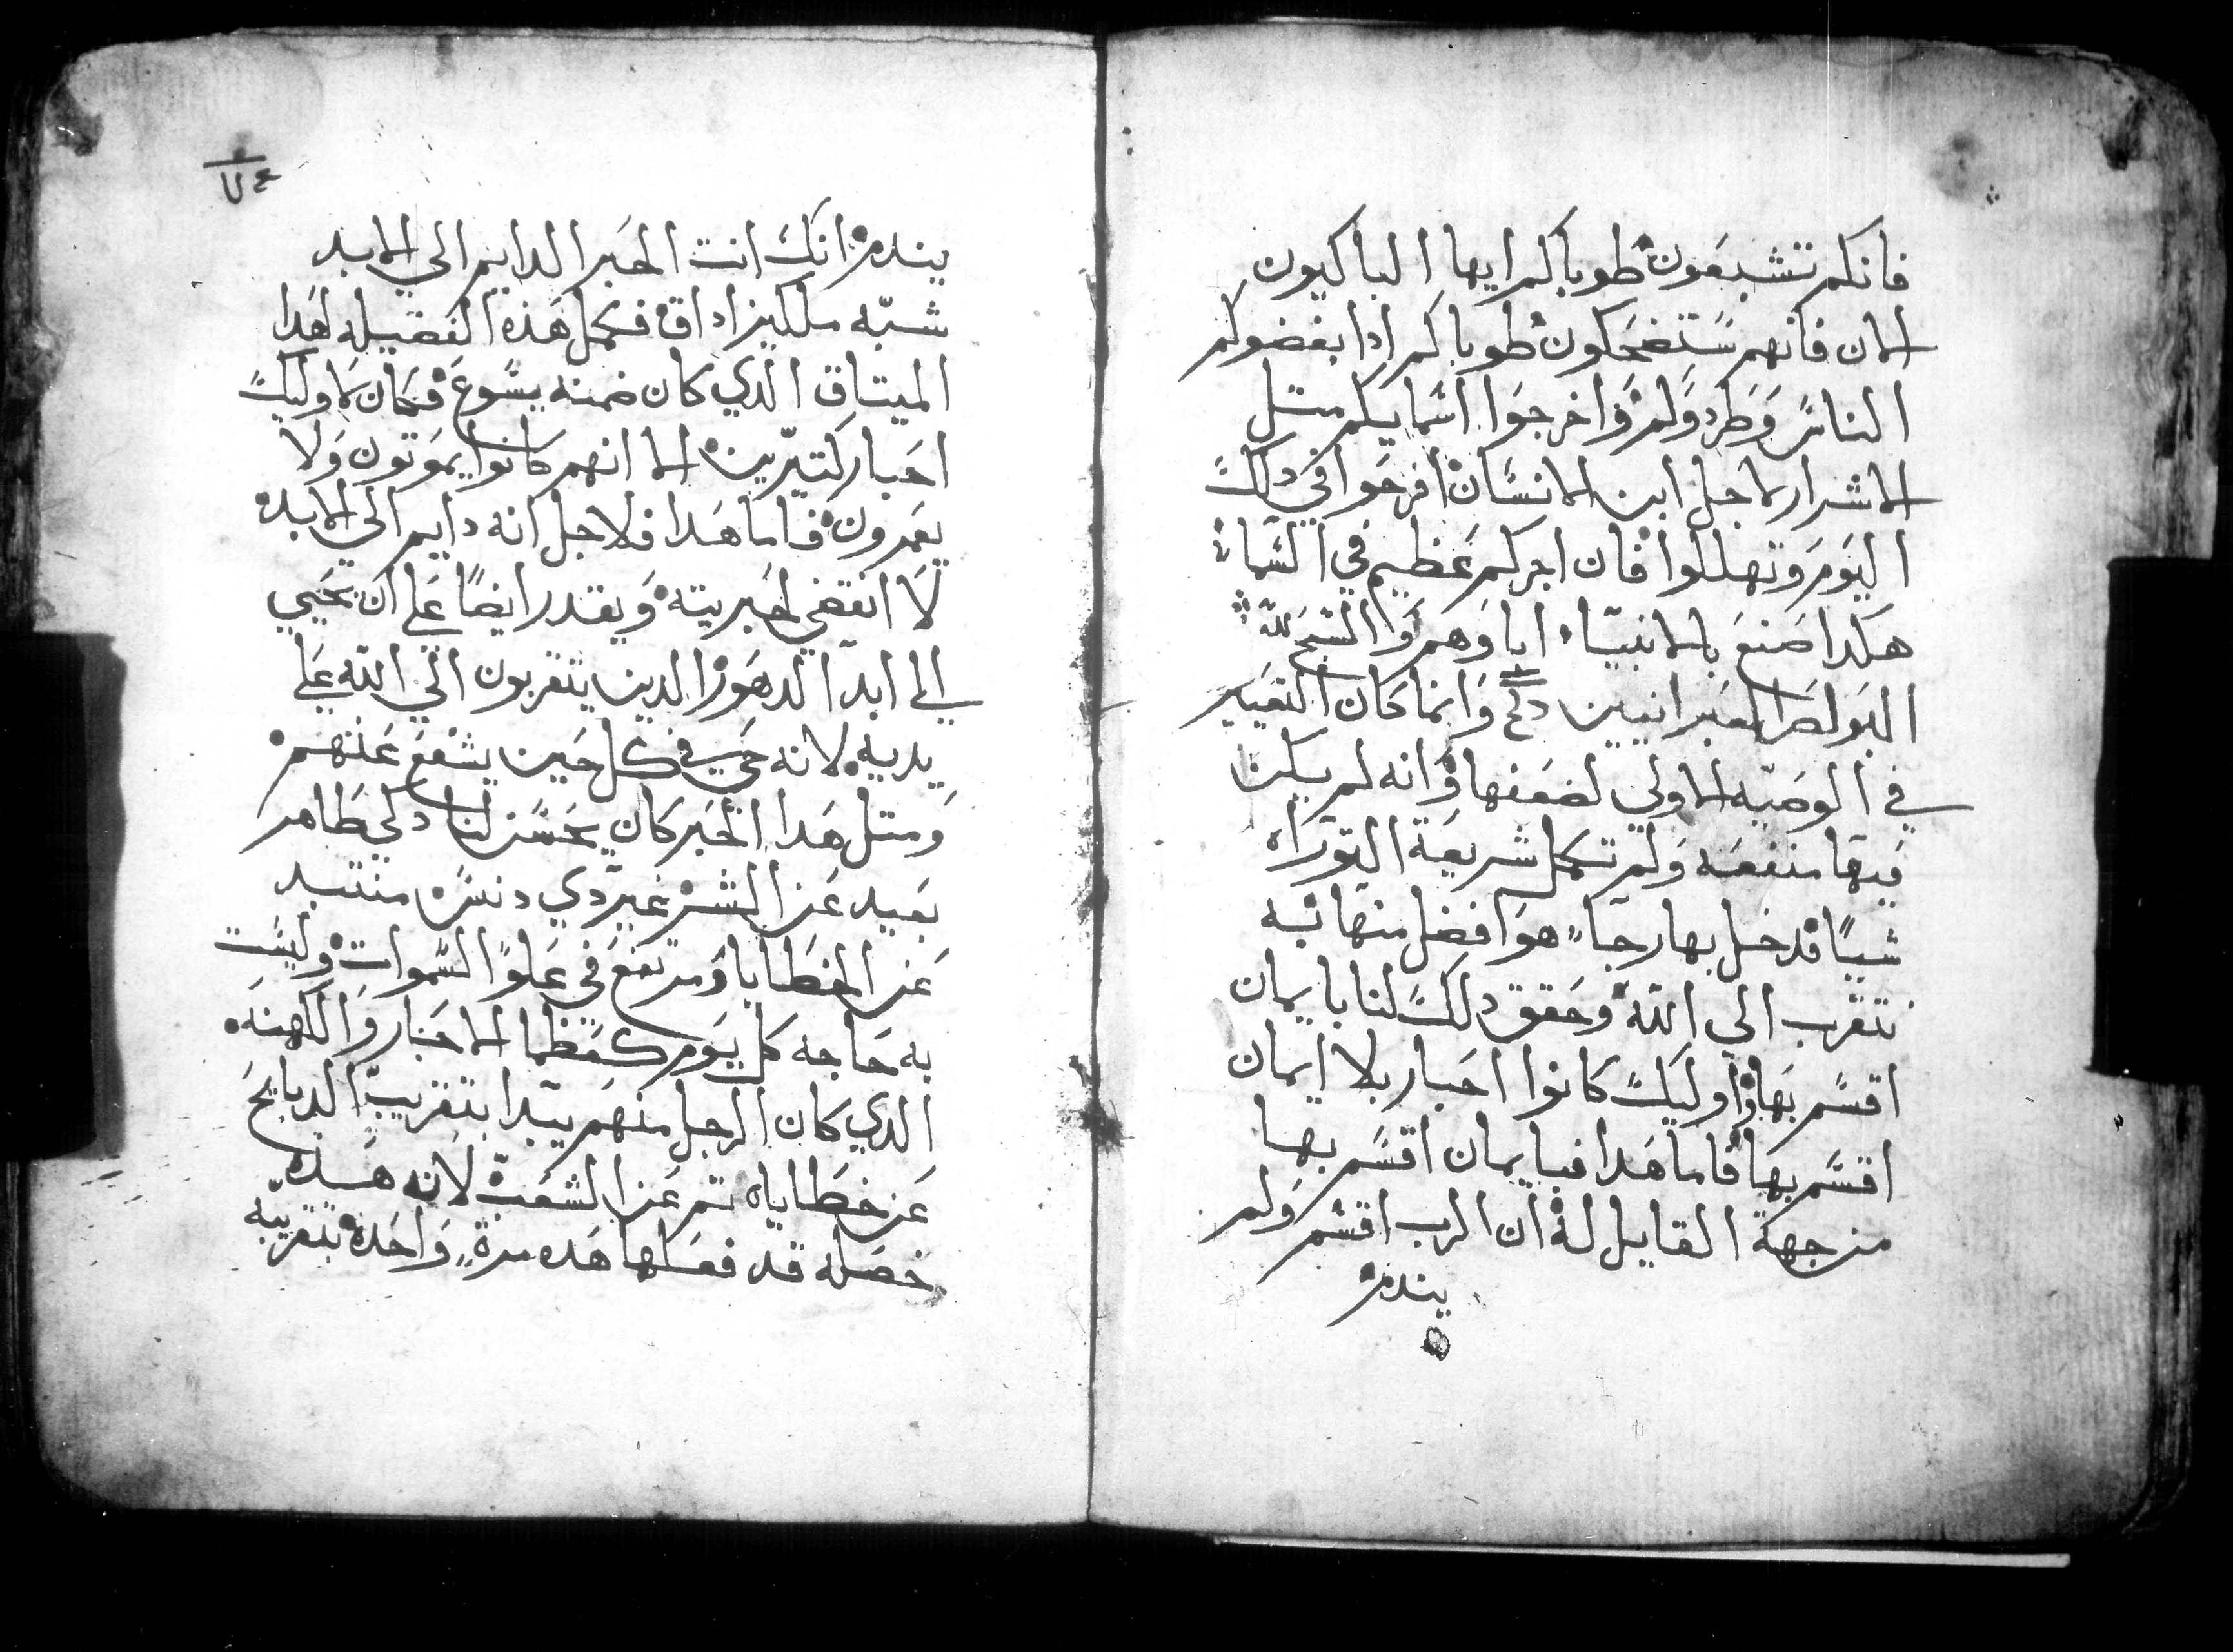 فانكم تشبعون طوباكم ايها الباكيون
الان فانهم ستضحكون طوباكم ادا بغضوكم
الناس وطردولم واخرجوا اسمايكم متل
الاشرار لاجل ابن الانسان افرحوا في دلك
اليوم وتهللوا فان اجركم عظيم في السماء
هكدا صنع بالانبياء اباوهم والسبح لله
البولص العبرانيين وانما كان التغيير
في الوصيه الاولي لضعفها وانه لم يكن
فيها منفعه ولم تكمل شريعة التوراه
شيا قدخل بها رجاء هو افضل منها به
نتقرب الي الله وحقق دلك لنا بايمان
اقسم بها واوليك كانوا احبار بلا ايمان
اقسم بها فاما هدا فبايمان اقسم بها
من جهة القايل له ان الرب اقسم ولم
يندم
يندم انك انت الحبر الدايم الي الابد
شبه ملكيزاداق فكمل هذه الفضيله لهدا
الميتاق الدي كان ضمنه يسوع فكان لاوليك
احبار كتيرين الا انهم كانوا يموتون ولا
يعمرون فاما هدا فلاجل انه دايم الي الابد
لا انقضي لحبريته ويقدر ايضا علي ان يحيي
الي ابد الدهور الدين يتقربون الي الله علي
يديه لانه حي في كل حين يشفع عنهم
ومتل هدا الحبر كان يحسن لنا دكي طاهر
بعيد عن الشر غير دي دنس منتبد
عن الخطايا ومرتفع في علو السموات وليست
به حاجه كل يوم كعظما الاحبار والكهنه
الدي كان الرجل منهم يبدا بتقريب الدبايح
عن خطاياه تم عن الشعب لانه هده
خصله قد فعلها هده مرة واحده بتقريبه